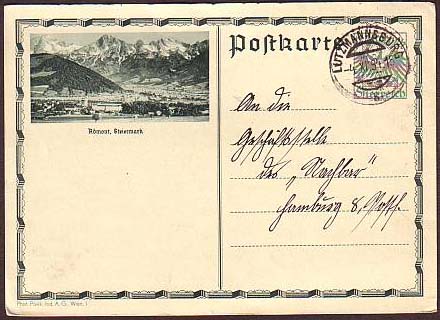 Postkarte
LUTZMANNSBURG
Österreich
Admont, Steiermark
An die
Geschäftsstelle
des „Nachbar"
Hamburg 8, Postf.
Phot. Postk. Ind. A. G. Wien, I